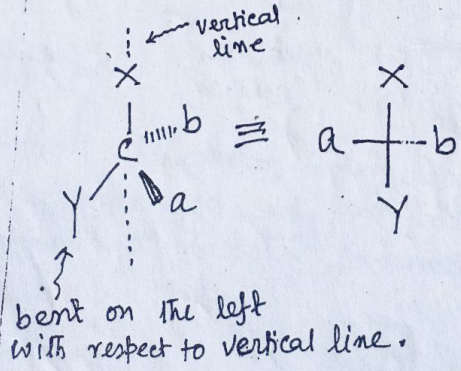 vertical
line
X
X
C
b
≡
a
b
Y
a
Y
bent on the left
with respect to vertical line.